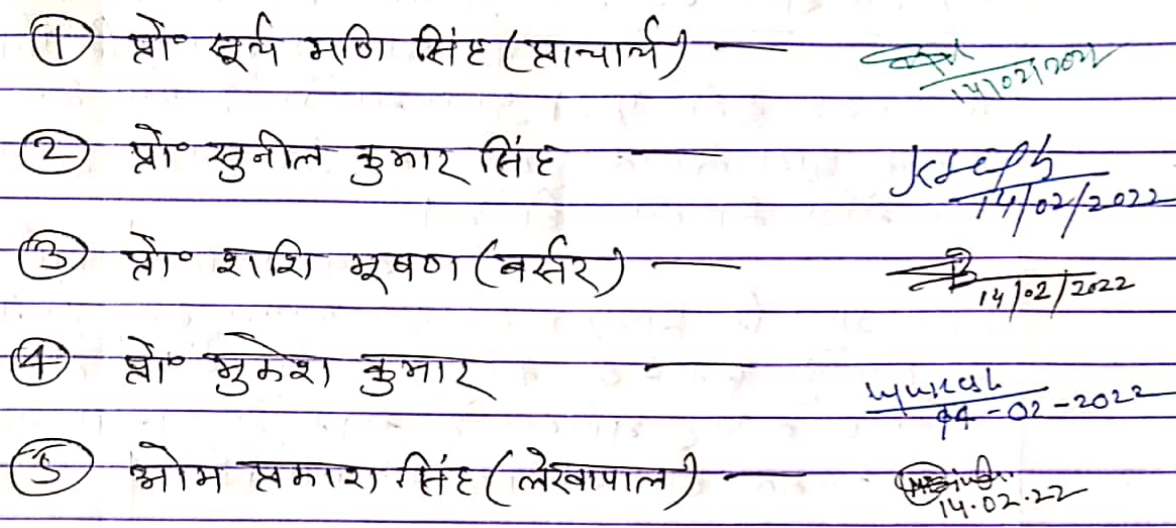 ① प्रो० सूर्य मणि सिंह (प्राचार्य) — 14/02/2022
② प्रो० सुनील कुमार सिंह — 14/02/2022
③ प्रो० शशि भूषण (बर्सर) — 14/02/2022
④ प्रो० मुकेश कुमार — Mukesh 14-02-2022
⑤ ओम प्रकाश सिंह (लेखापाल) — 14.02.22